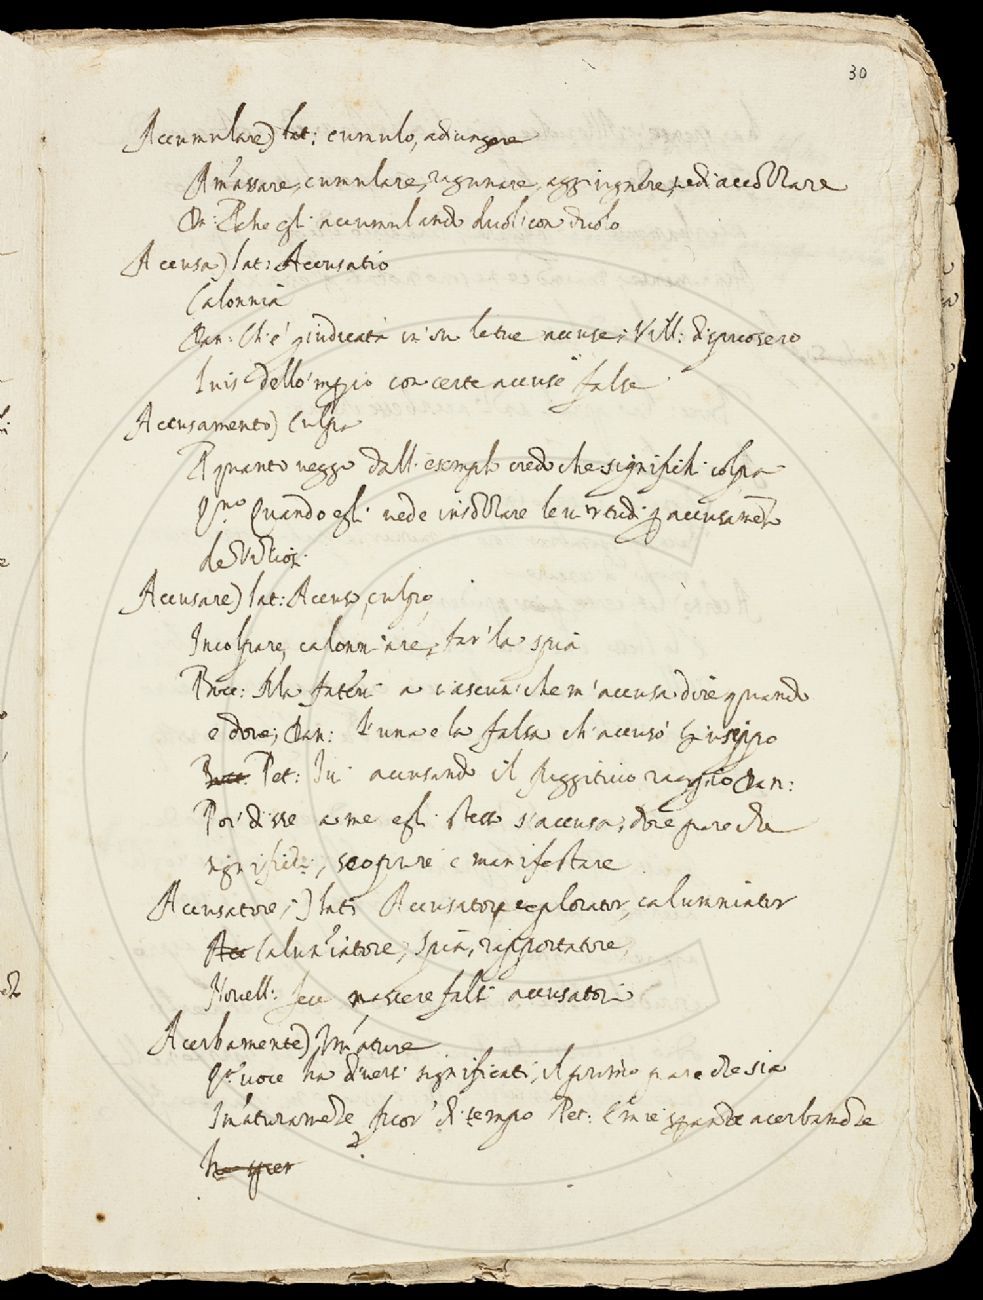 30
Accumulare) lat: cumulo, adiungere
Am̃assare, cumulare, ragunare, aggiugnere,
Dan: Per che egli accumulando duol con duolo
Accusa) lat: Accusatio
Calonnia
Dan: Ch'e' giudicata in su le tue accuse; Vill: disposero
dello 'mperio con certe accuse false
Accusamento) Culpa
A quanto veggo dall' esemplo credo che significhi colpa
Quando egli vede insollare le virtudi p accusamẽto
de
Accusare) lat: Accuso, culpo,
Incolpare, calonniare, far' la spia
Bocc: Ma fatemi a ciascun che m'accusa dire quando
e dove; Dan: L'una e la falsa ch'accusò Giuseppo
Pet: accusando il fuggitivo raggio Dan:
Poi disse a me egli stesso s'accusa; dove pare che
significhi, scoprire e manifestare
Accusatore,) lat: Accusator, explorator, calumniator
Acc Calun̄iatore, Spia, rapportatore,
Novell: fece nascere falsi accusatori
Acerbamente) Im̃ature
Q.ta voce ha diversi significati, il primo pare che sia
Im̃aturamẽte, fuor' di tempo Pet: spande acerbamẽte